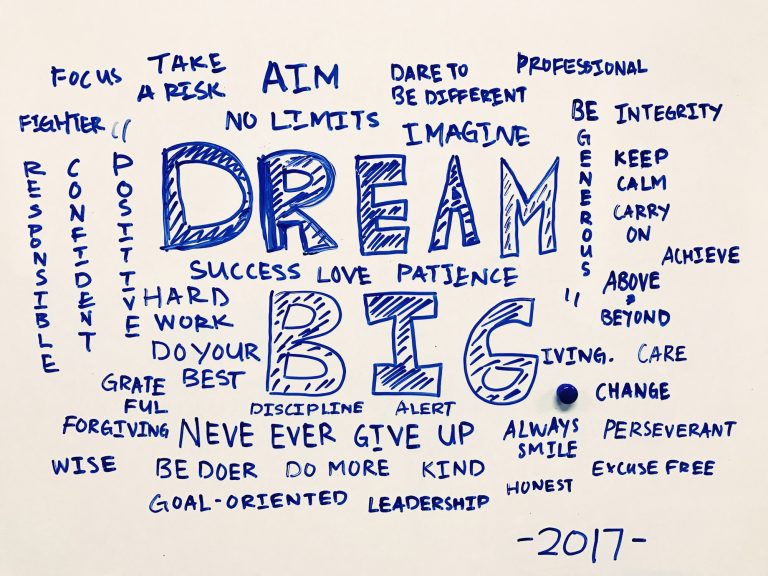 FOCUS
TAKE
A RISK
AIM
DARE TO
BE DIFFERENT
PROFESSIONAL
FIGHTER
NO LIMITS
IMAGINE
BE GENEROUS
INTEGRITY
KEEP
CALM
CARRY
ON
ACHIEVE
ABOVE
&
BEYOND
RESPONSIBLE
CONFIDENT
POSITIVE
"
DREAM
SUCCESS LOVE PATIENCE
"
HARD
WORK
DO YOUR
BEST
BIG
IVING.
CARE
CHANGE
GRATE
FUL
DISCIPLINE
ALERT
FORGIVING
NEVE EVER GIVE UP
ALWAYS
SMILE
PERSEVERANT
WISE
BE DOER
DO MORE
KIND
EXCUSE FREE
GOAL-ORIENTED
LEADERSHIP
HONEST
-2017-